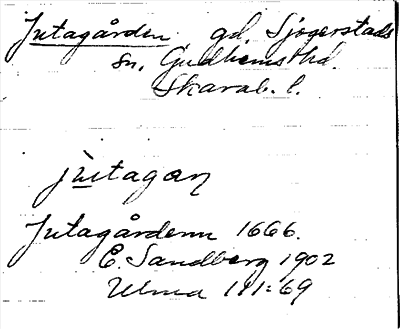 Jutagården gd. Sjogerstads
sn. Gudhems hd
Skarab. l.
jùtagaɲ
Jutagårdenn 1666.
E. Sandberg 1902
Ulma 111:69